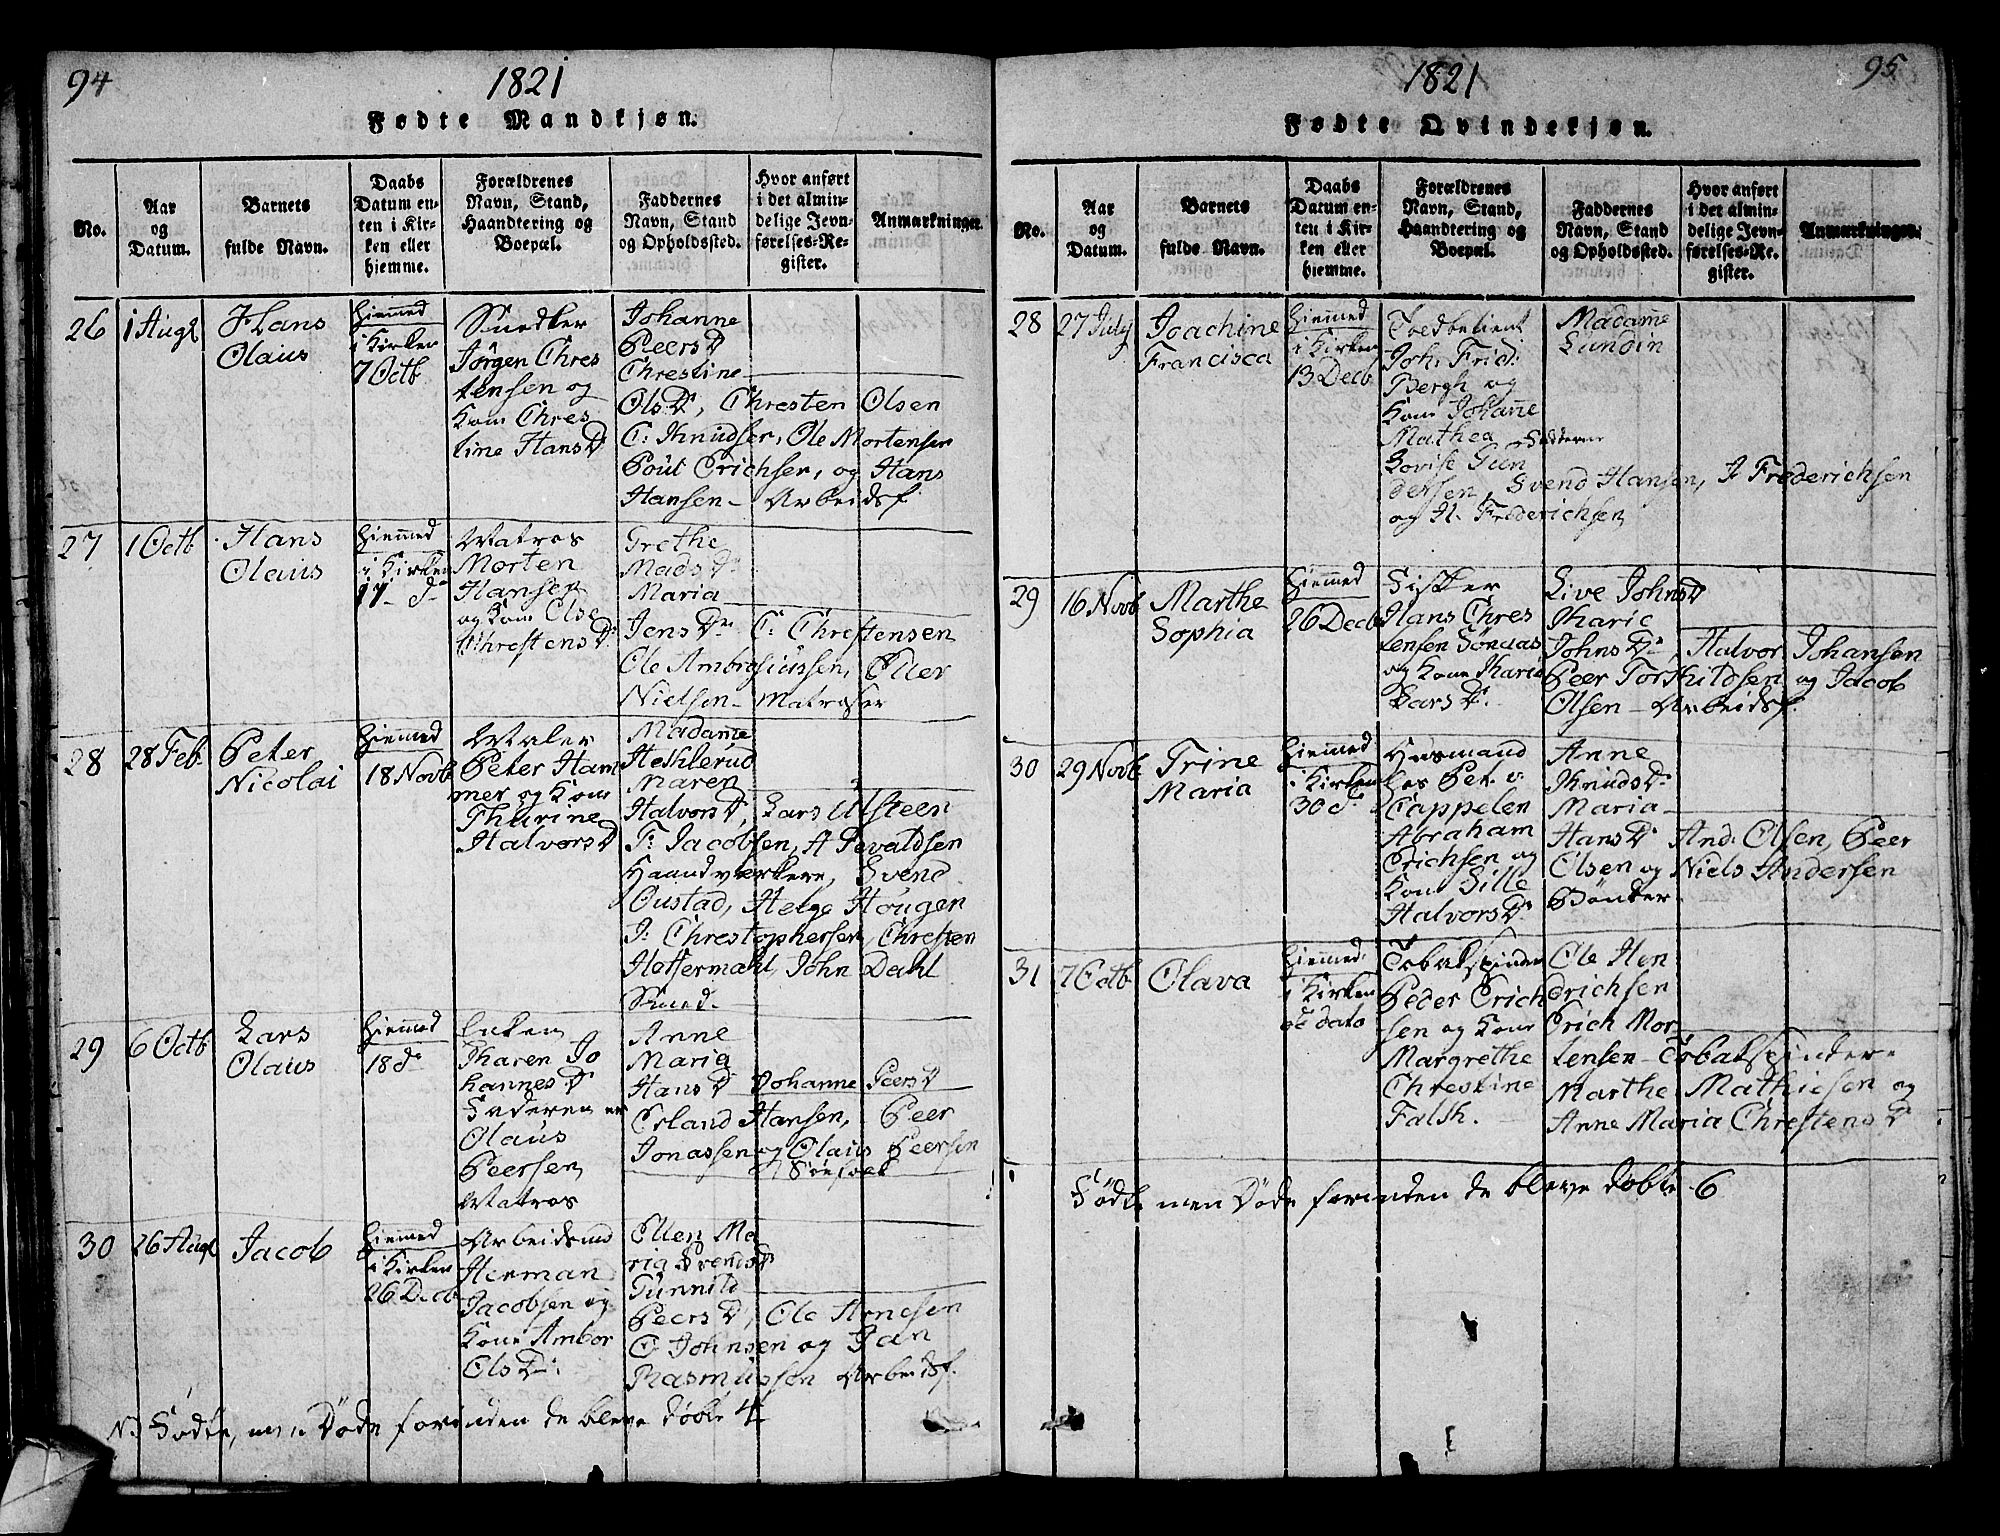 94
1821
Fødte Mandkjøn.
No.
Aar
og
Datum.
Barnets
fulde Navn.
Daabs
Datum en-
ten i Kir-
ken eller
hjemme.
Forældrenes
Navn, Stand,
Haandtering og
Boepæl.
Faddernes
Navn, Stand
og Opholdssted.
Hvor anført
i det almin-
delige Jevn-
førelses-Re-
gister.
Anmarkninger.
26
1 Augt
Hans
Olaus
Hiemmed
i Kirken
7 Octb
Snedker
Jørgen Chres
tensen og
Kone Chres
tine HansD
Johanne
PeersD
Chrestine
OlsDr, Chresten Olsen
C: Knudsen, Ole Mortensen
Poul Erichsen, og Hans
Hansen - Arbeidsf
27
1 Octb
Hans
Olaus
Hiemmed
i Kirken
17 - dr
Matros
Morten
Hansen
og Kone Else
ChrestensD:
Grethe
MadsDr
Maria
JensDr C: Chrestensen
Ole Ambrosiussen, Eller
Nielsen - Matroser
28
28 Feb.
Peter
Nicolai
Hiemmed
18 Novb
Maler
Peter Ham
mer og Kone
Thurine
HalvorsD
Madamme
Hesklerud
Maren
HalvorsD, Lars Ulsteen
T: Jacobsen, A Pevaldsen
Haandværkere, Svend
Oustad, Helge Hougen
J: Chrestophersen, Chresten
Hoffermahl, John Dahl
Smed.
29
6 Octb
Lars
Olaus
Hiemmed
18 dr
Enken
Karen Jo
hannesD
Faderen er
Olaus
Peersen
Matros
Anne
Maria
HansD Johanne PeersD
Erland Hansen, Peer
Jonassen og Olaus Peersen
Søefolk
30
26 Augt
Jacob
Hiemmed
i Kirken
26 Decb
Arbeidsmd
Herman
Jacobsen og
Kone Ambor
OlsDr:
Ellen Ma
ria SvendsDr
Gunnild
PeersD, Ole Arnesen
O Johnsen og Jan
Rasmussen Arbeidsf.
N: Fødte, men Døde forinden de bleve døbte 4
95
1821
Fødte Qvindekjøn.
No.
Aar
og
Datum.
Barnets
fulde Navn.
Daabs
Datum en-
ten i Kir-
ken eller
hjemme.
Forældrenes
Navn, Stand,
Haandtering og
Boepæl.
Faddernes
Navn, Stand
og Opholdssted.
Hvor anført
i det almin-
delige Jevn-
førelses-Re-
gister.
Anmarkninger.
28
27 July
Joachine
Francisca
Hiemmed
i Kirken
13 Decb
Toldbetient
Joh. Frid:
Bergh og
Kone Johanne
Mathea
Lovise Gun
dersen,
Madamme
Lundin
Fadderne
Svend Hansen, J Frederichsen
og H. Frederichsen
29
16 Novb
Marthe
Sophia
Hiemmed
26 Decb
Fisker
Hans Chres
tensen
og Kone Karie
LarsD:
Live JohnsD
Karie
JohnsDr, Halvor Johansen
Peer Torkildsen og Jacob
Olsen - Arbeidsf.
30
29 Novb
Trine
Maria
Hiemmed
i Kirken
30 dr
Huusmand
hos Pet. v:
Cappelen
Abraham
Erichsen og
Kone Sille
HalvorsDr
Anne
KnudsDr
Maria
HansDr And: Olsen, Peer
Olsen og Niels Andersen
Bønder
31
7 Octb
Olava
Hiemmed
i Kirken
dato
Tobakspinder
Peder Erich
sen og Kone
Margrethe
Chrestine
Falsh.
Ole Hen
drichsen
Erich Mor
tensen - Tobakspinder.
Marthe Mathiesen og
Anne Maria ChrestensD
Fødte men Døde forinden de bleve døbte 6